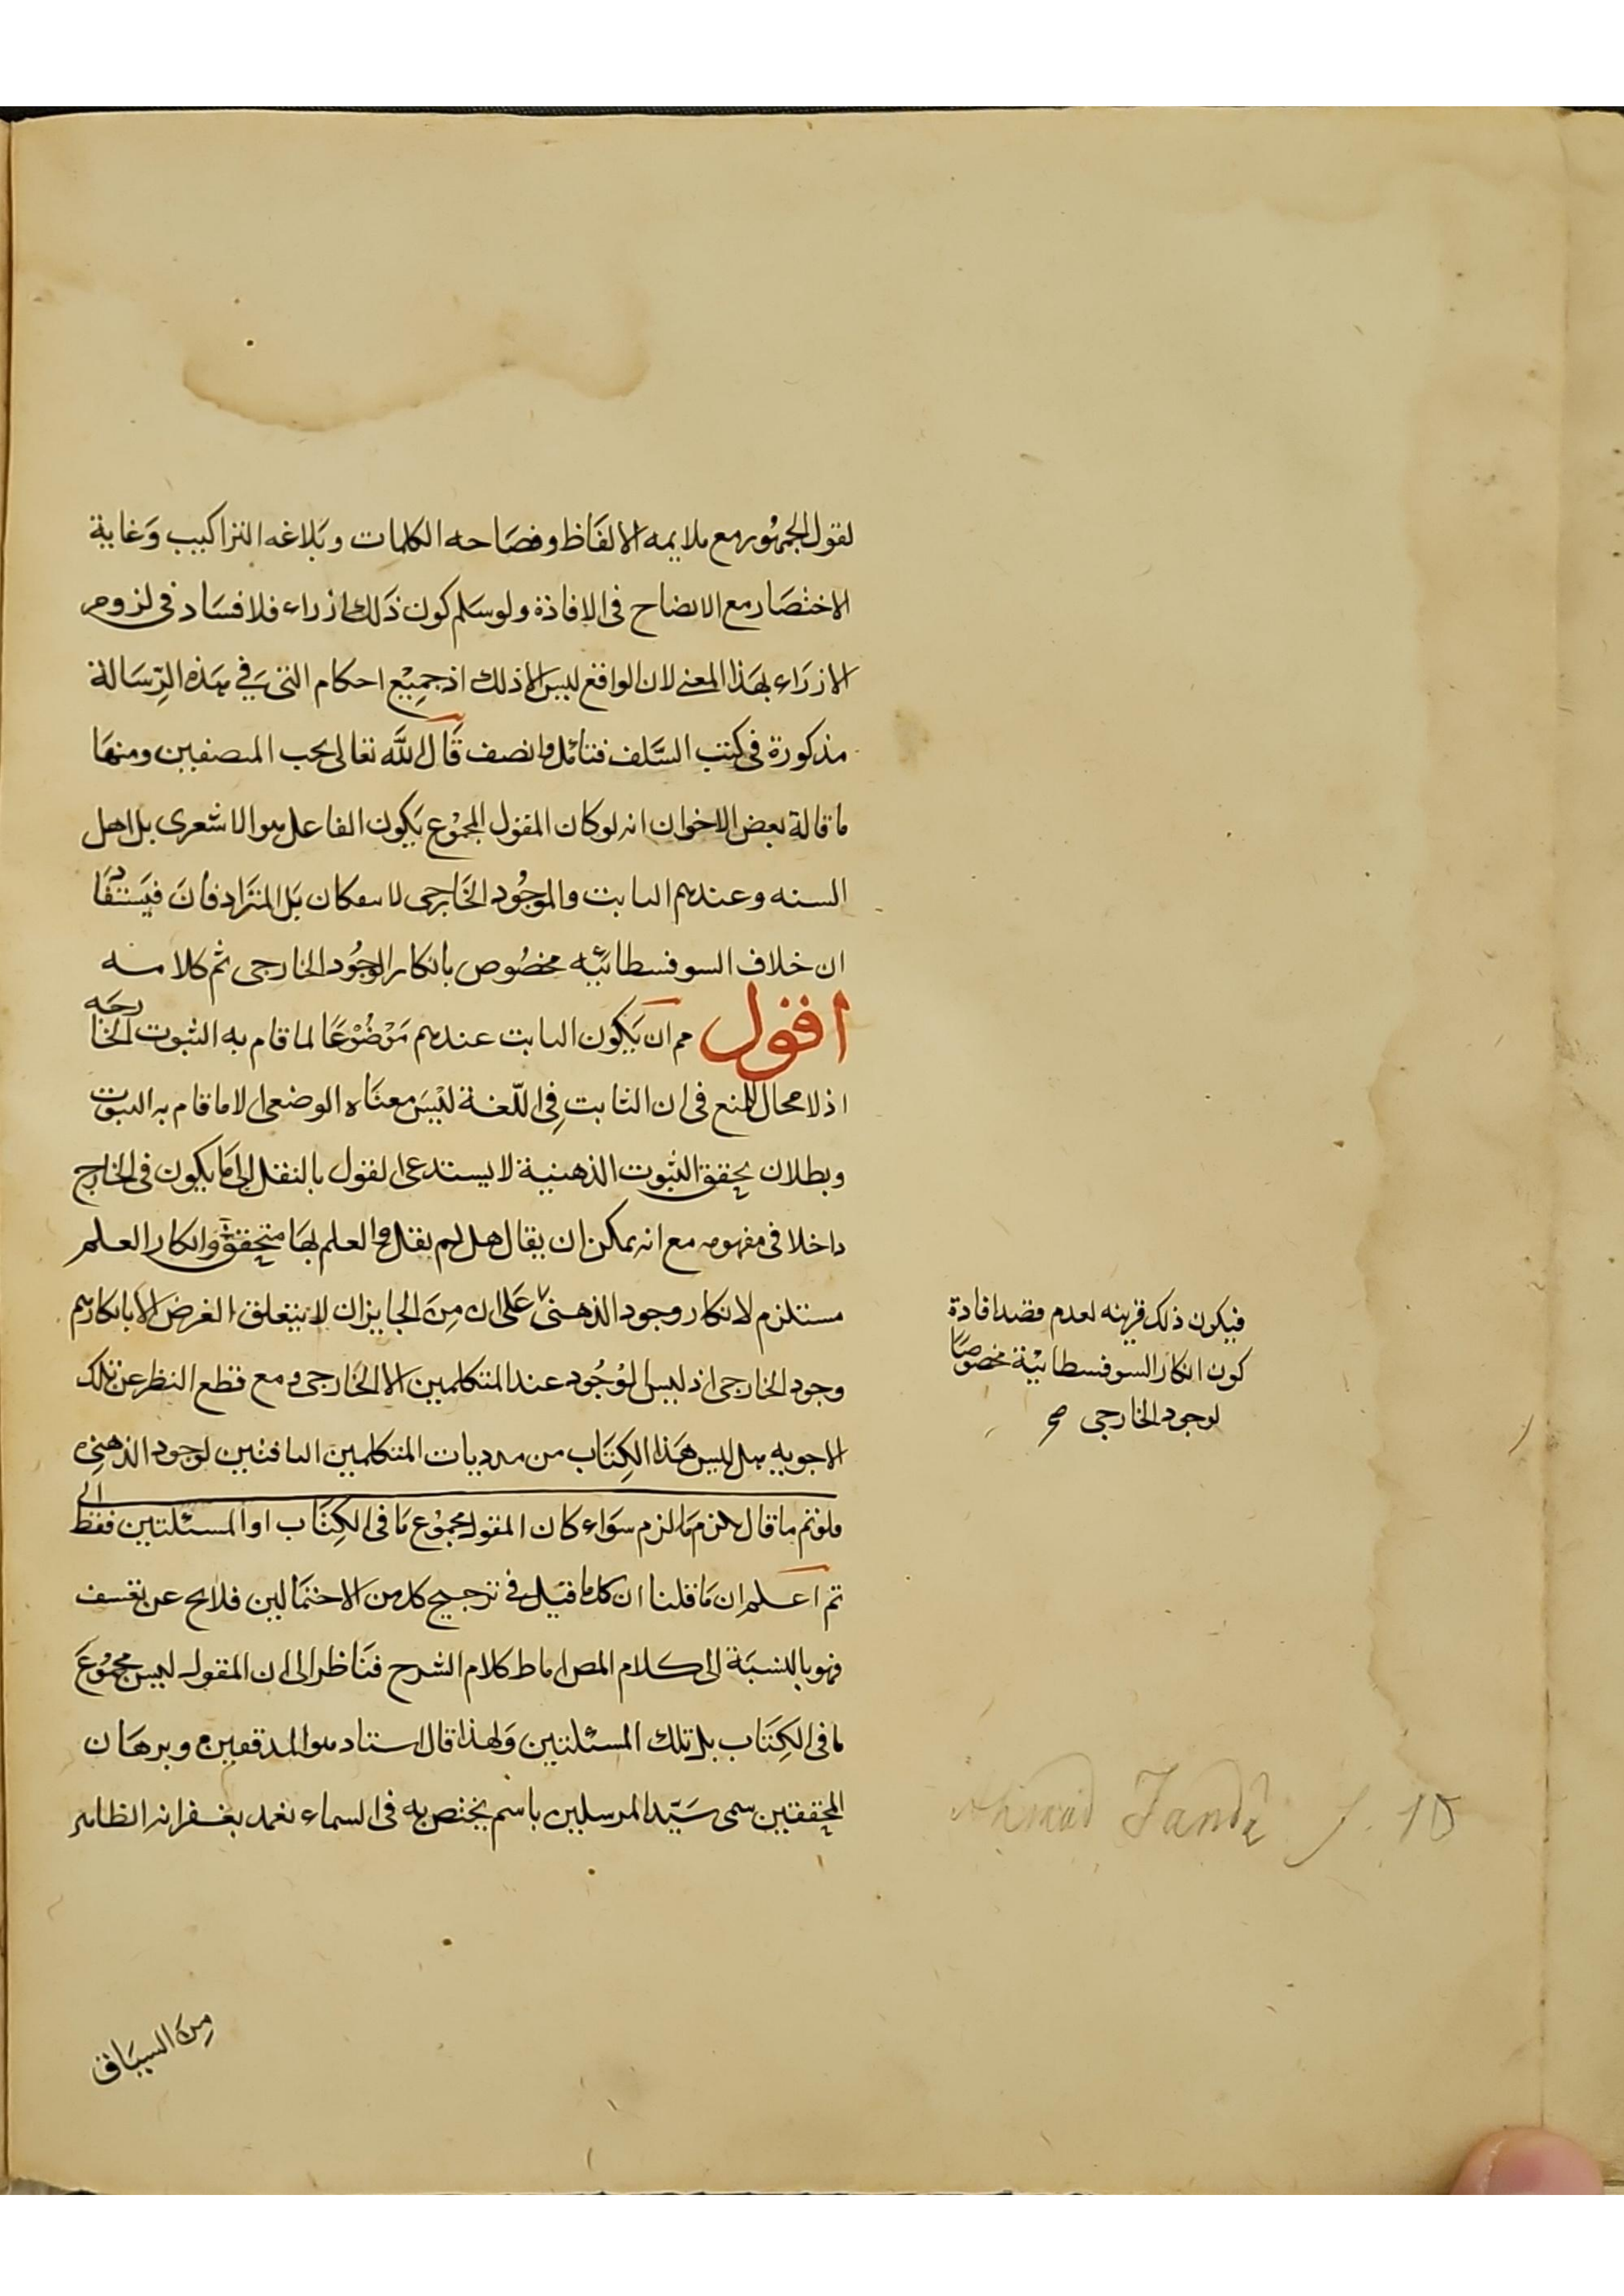 لقول الجمهور مع ملايمه الالفاظ وفصاحه الكلمات وبلاغه التراكيب وغاية
الاختصار مع الايضاح فى الافادة ولو سلم كون ذلك ازراء فلا فساد فى لزوم
الازراء بهذا المعنى لان الواقع ليس الا ذلك اذ جميع احكام التى فى هذه الرسالة
مذكورة فى كتب السلف فتامل وانصف قال الله تعالى يحب المنصفين ومنها
ما قالة بعض الاخوان انه لو كان المقول المجموع يكون الفاعل هو الاشعرى بل اهل
السنه وعندهم الثابت والموجود الخارجى لا ينفكان بل المترادفان فيستفاد
ان خلاف السوفسطائيه مخصوص بانكار الوجود الخارجى ثم كلامه
اقول مم ان يكون الثابت عندهم موضوعا لما قام به الثبوت الخارجه
اذ لا محال للمنع فى ان الثابت فى اللغة ليس معناه الوضعى الا ما قام به الثبوت
وبطلان تحقق الثبوت الذهنية لا يستدعى القول بالنقل الى ما يكون فى الخارج
داخلا فى مفهومه مع انه يمكن ان يقال هل لم يقل والعلم بها متحقق وانكار العلم
مستلزم لانكار وجود الذهنى على ان من الجايز ان لا يتعلق الغرض الا بانكارهم
وجود الخارجى اذ ليس الموجود عند المتكلمين الا الخارجى ومع قطع النظر عن تلك
الاجوبه هل ليس هذا الكتاب من مرديات المتكلمين النافين لوجود الذهنى
فلو تم ما قال لزم ما لزم سواء كان المقول مجموع ما فى الكتاب او المسئلتين فقط
ثم اعلم ان ما قلنا ان كل ما قيل فى ترجيح كل من الاحتمالين فلا يخ عن تعسف
فهو بالنسبة الى كلام المص اما ط كلام الشرح فناظر الى ان المقول ليس مجموع
ما فى الكتاب بل تلك المسئلتين ولهذا قال استاد هو المدققين وبرهان
المحققين سمى سيد المرسلين باسم يختص به فى السماء تغمد بغفرانه الظاهر
من السياق
فيكون ذلك قرينه لعدم قصد افادة
كون انكار السوفسطائية مخصوصا
لوجود الخارجى صح
Ahmad Jandi f. 10